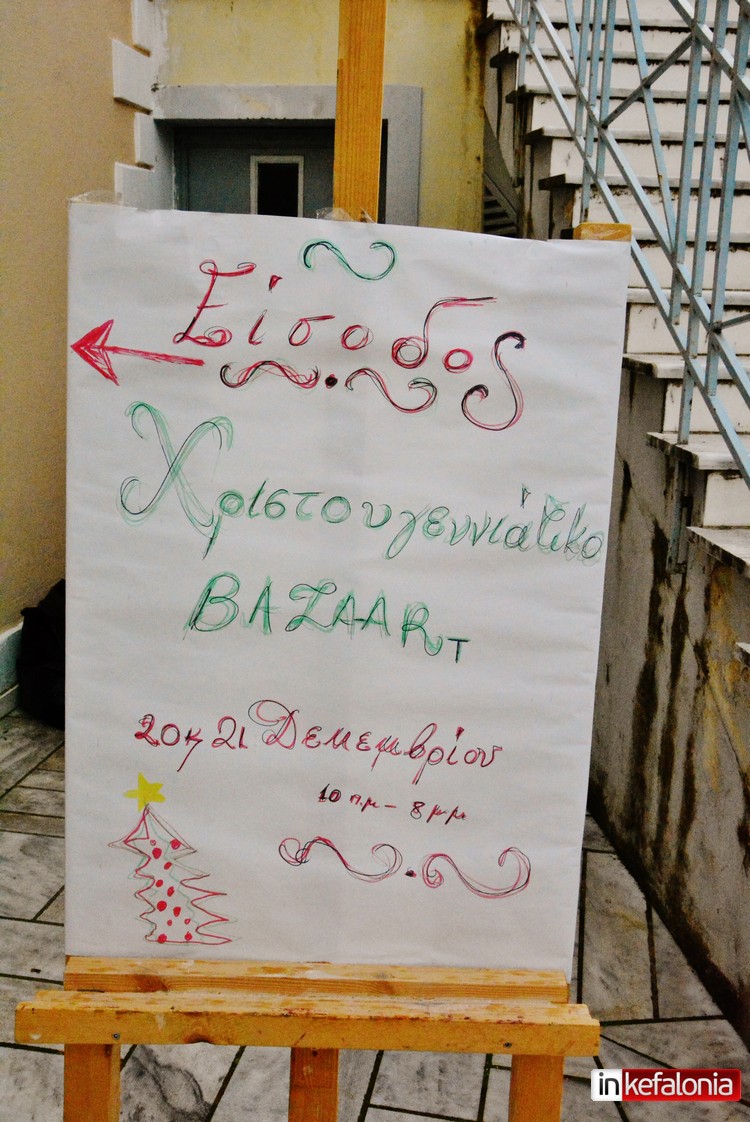 Είσοδος
Χριστουγεννιάτικο
BAZAART
20 κ 21 Δεκεμβρίου
10 π.μ - 8 μμ
inkefalonia